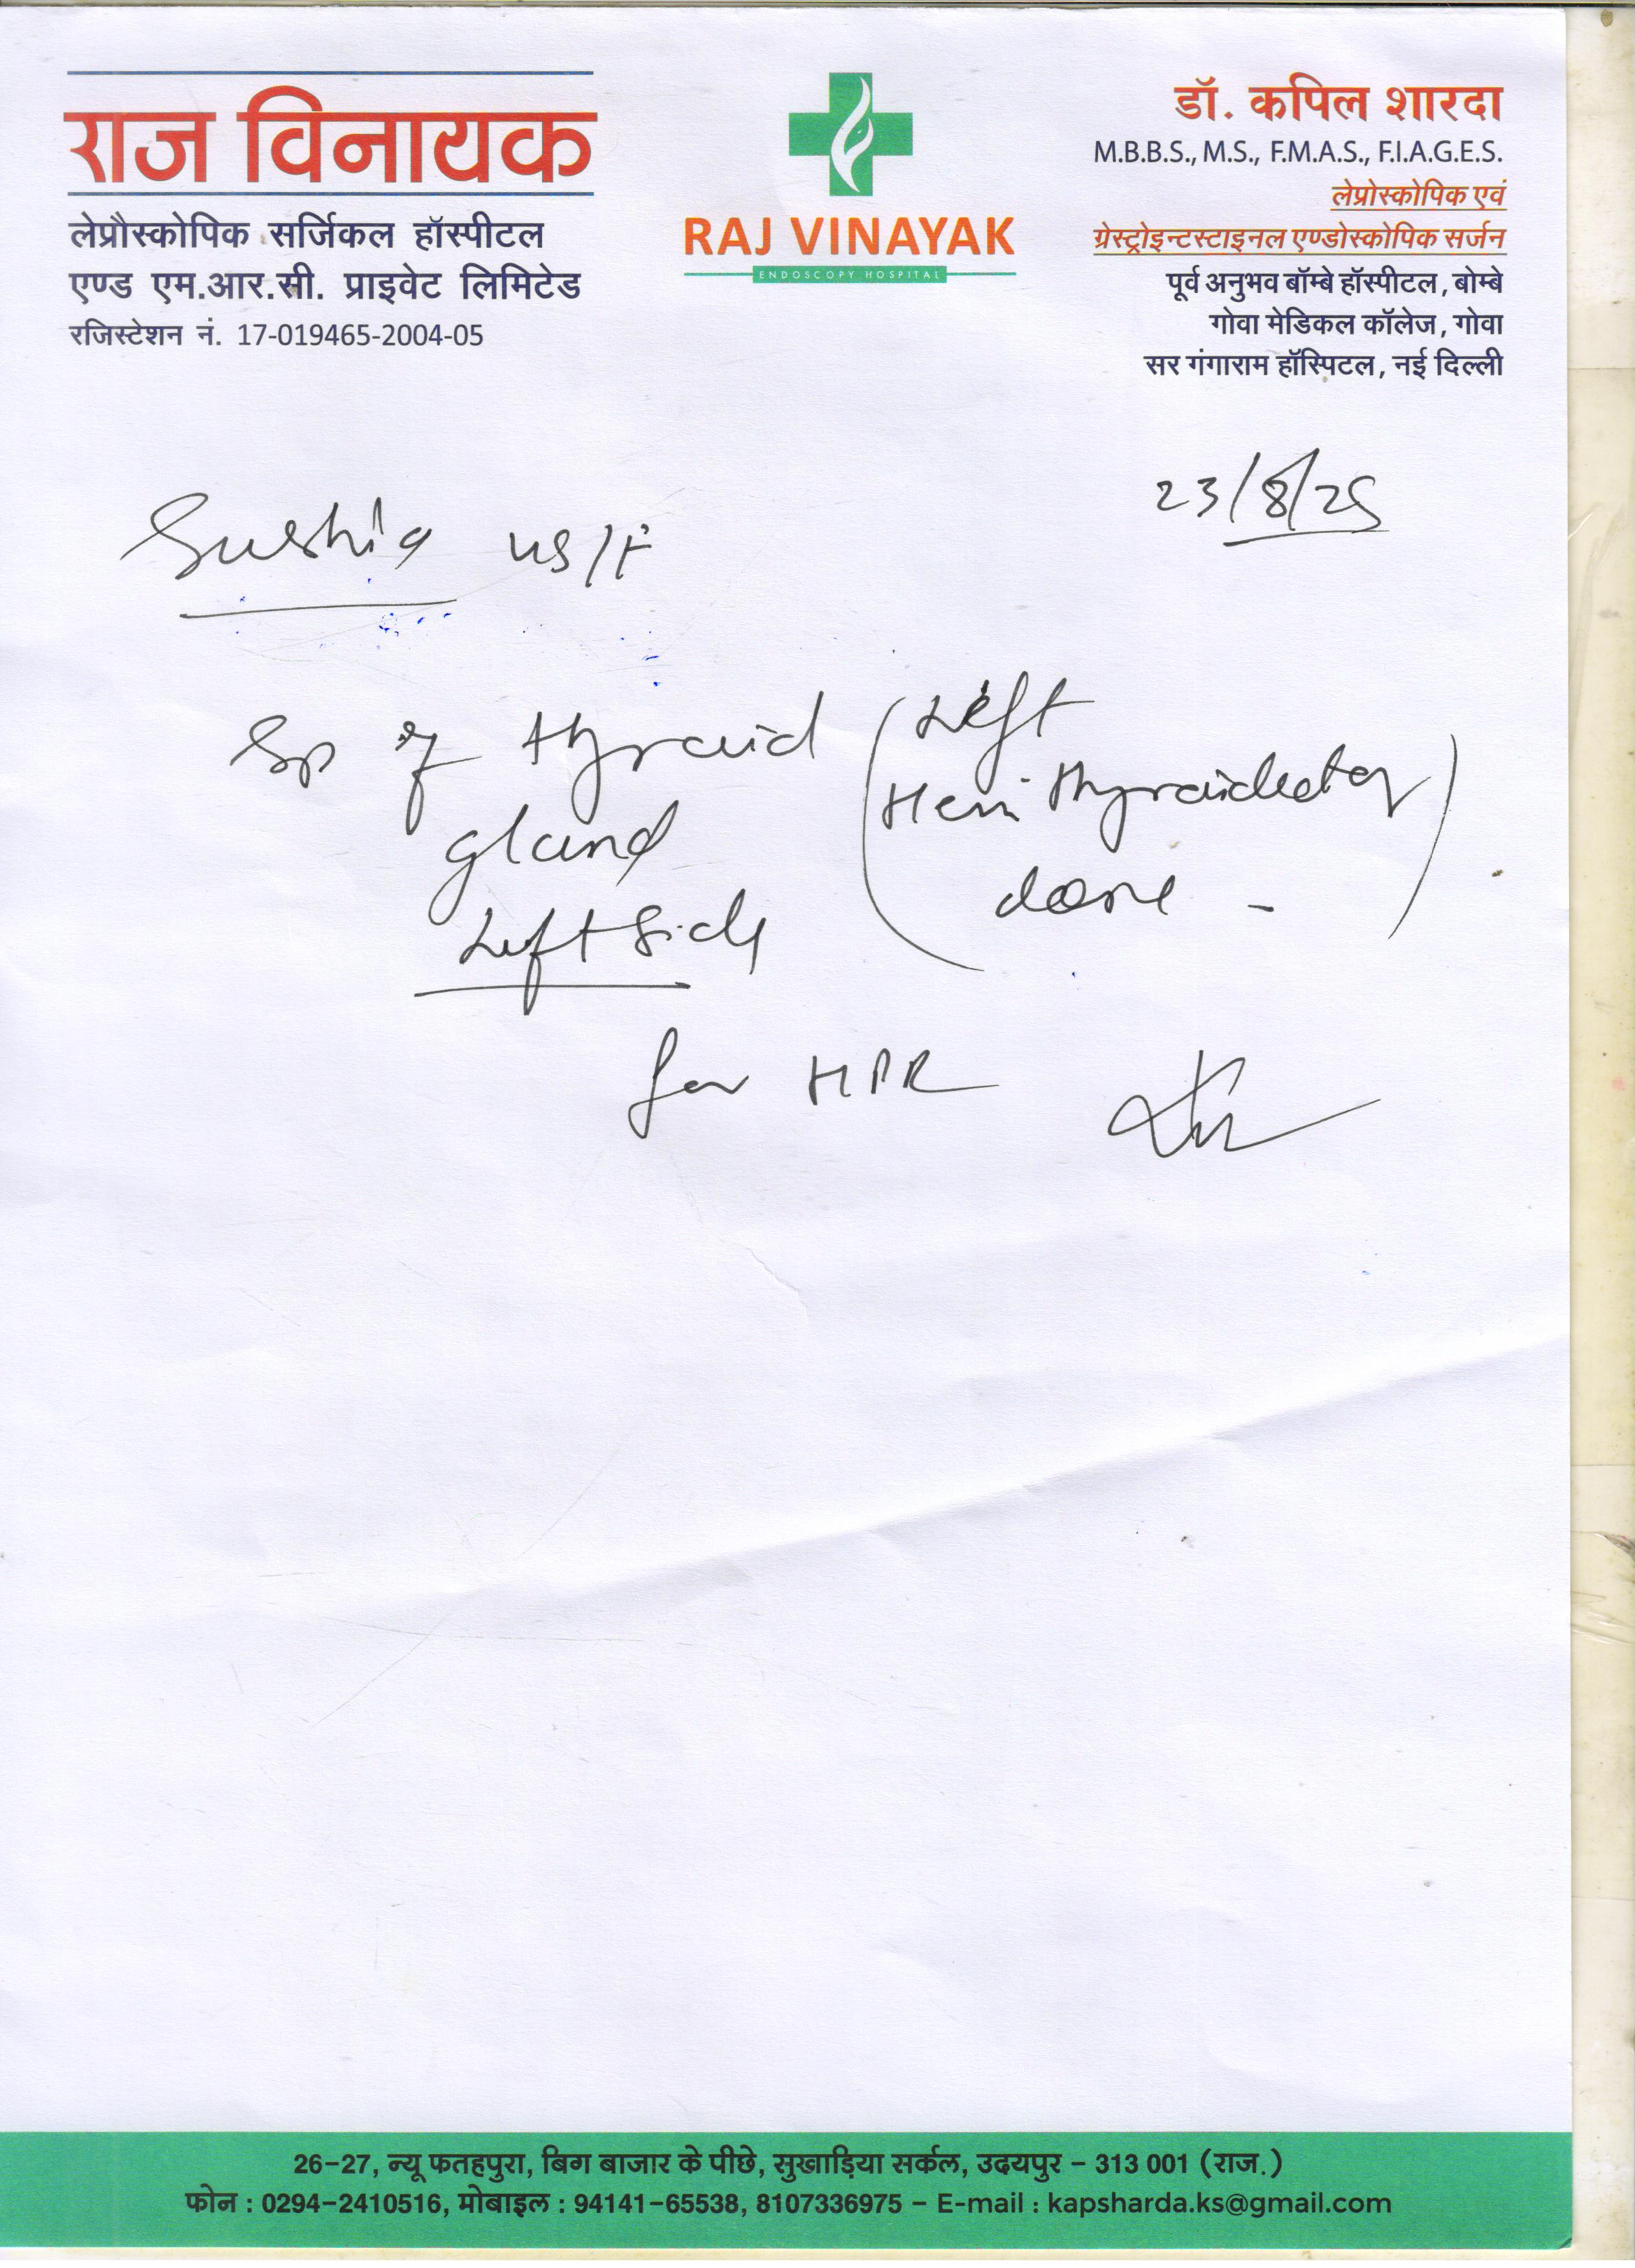 राज विनायक
लेप्रौस्कोपिक सर्जिकल हॉस्पीटल
एण्ड एम.आर.सी. प्राइवेट लिमिटेड
रजिस्टेशन नं. 17-019465-2004-05
RAJ VINAYAK
ENDOSCOPY HOSPITAL
डॉ. कपिल शारदा
M.B.B.S., M.S., F.M.A.S., F.I.A.G.E.S.
लेप्रोस्कोपिक एवं
ग्रेस्ट्रोइन्टस्टाइनल एण्डोस्कोपिक सर्जन
पूर्व अनुभव बॉम्बे हॉस्पीटल, बोम्बे
गोवा मेडिकल कॉलेज, गोवा
सर गंगाराम हॉस्पिटल, नई दिल्ली
23/8/25
45/F
Sp of thyroid (Left
gland Hemithyroidectomy
Left side done -)
for HPR
26-27, न्यू फतहपुरा, बिग बाजार के पीछे, सुखाड़िया सर्कल, उदयपुर - 313 001 (राज.)
फोन : 0294-2410516, मोबाइल : 94141-65538, 8107336975 - E-mail : kapsharda.ks@gmail.com